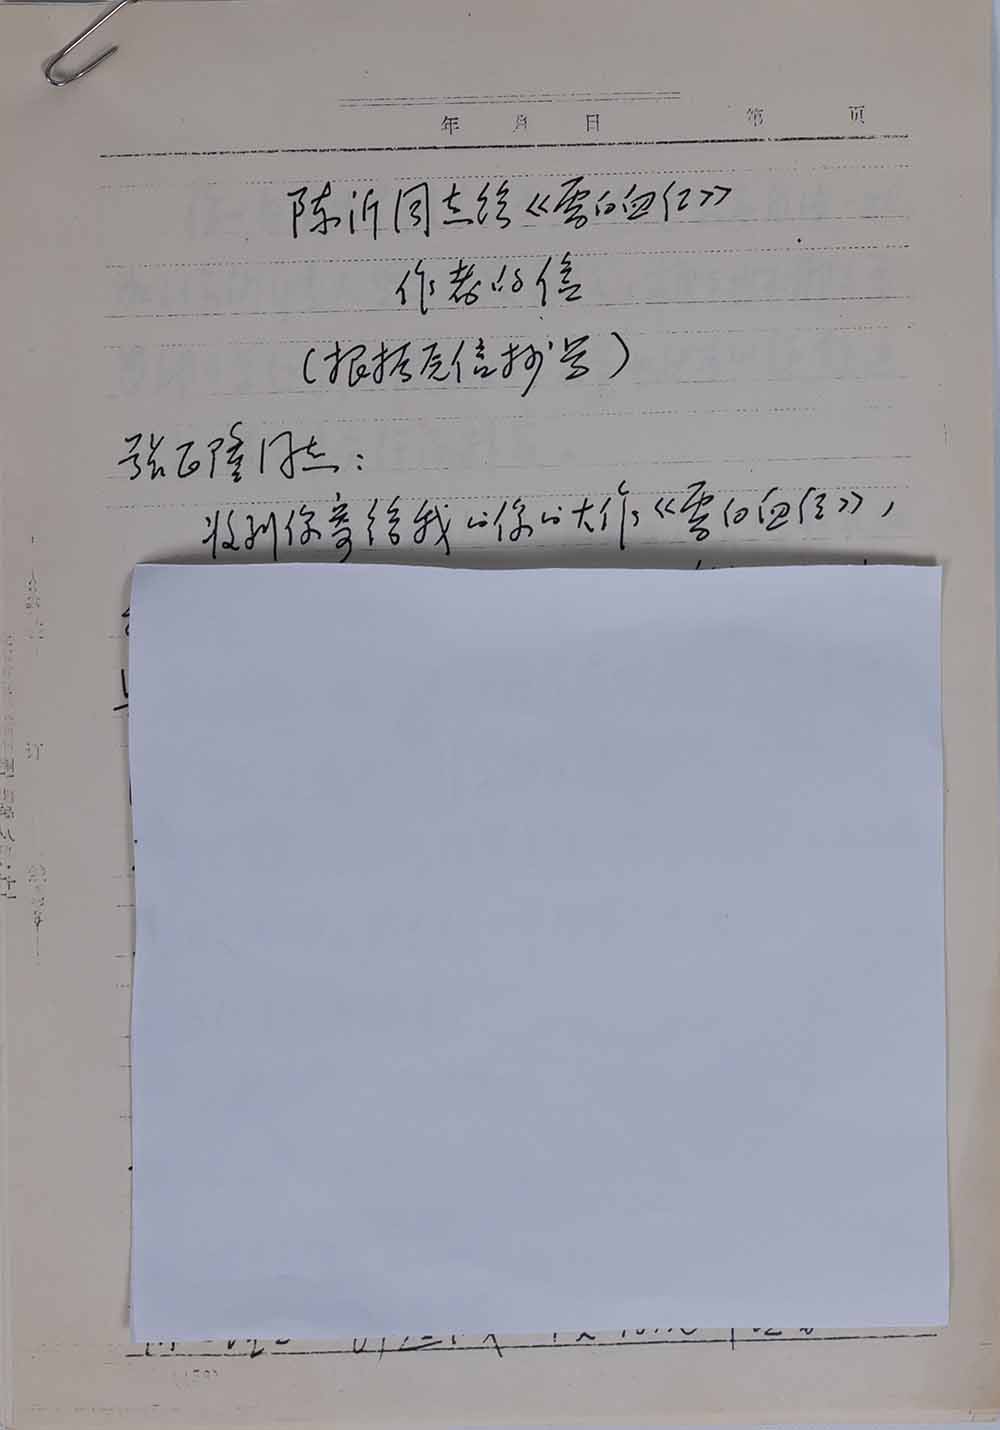 年 月 日 第 页
陈沂同志给《雪白血红》
作者的信
(根据原信抄写)
张正隆同志:
收到你寄给我的你的大作《雪白血红》,
订